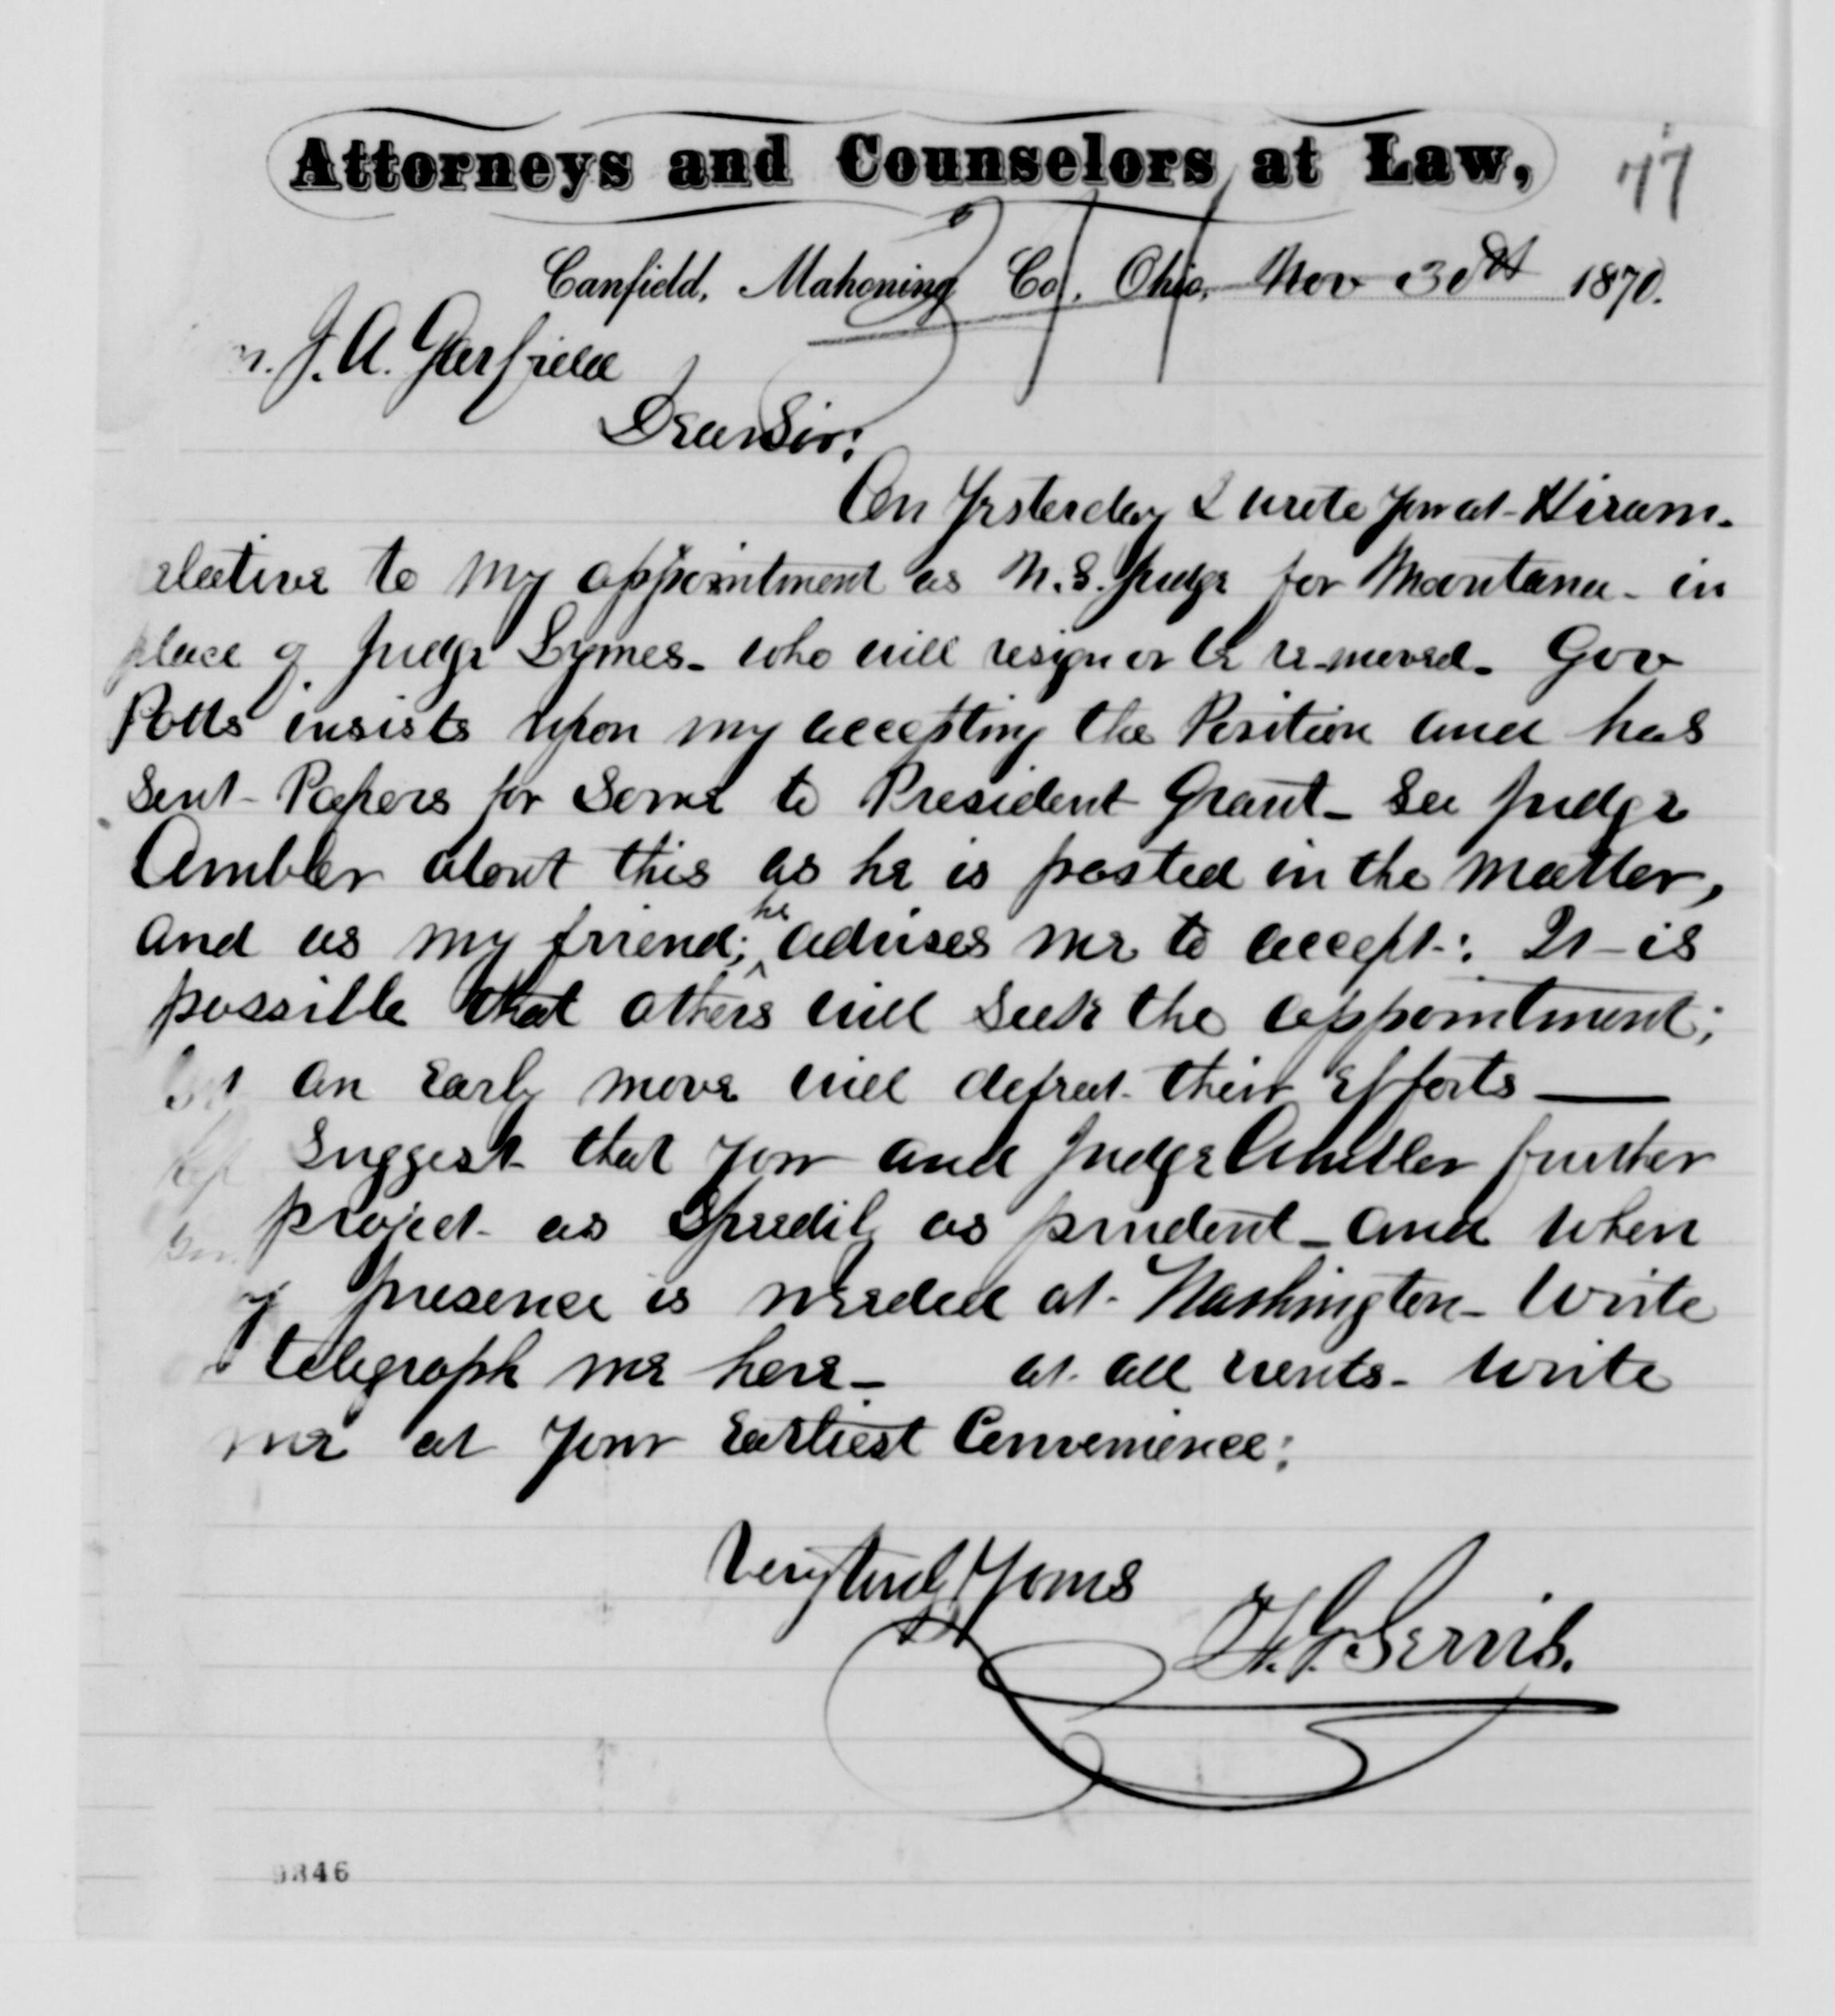 Attorneys and Counselors at Law,
77
Canfield, Mahoning Co. Ohio, Nov 30th 1870.
n. J. A. Garfield
Dear Sir:
On Yesterday I wrote you at Hiram.
elative to my appointment as U.S. Judge for Montana - in
place of Judge Symes - who will resign or be re-moved - Gov
Potts insists upon my accepting the Position and has
Sent - Papers for Same to President Grant - See Judge
Ambler about this as he is posted in the matter,
and as my friend; he advises me to accept: It - is
possible that others will Seek the appointment;
but an Early move will defeat their Efforts —
Suggest that you and Judge Ambler further
project as Speedily as prudent - and when
my presence is needed at Washington - Write
telegraph me here - at all events - Write
me at your Earliest Convenience:
Very truly Yours
F. G. Servis.
9846